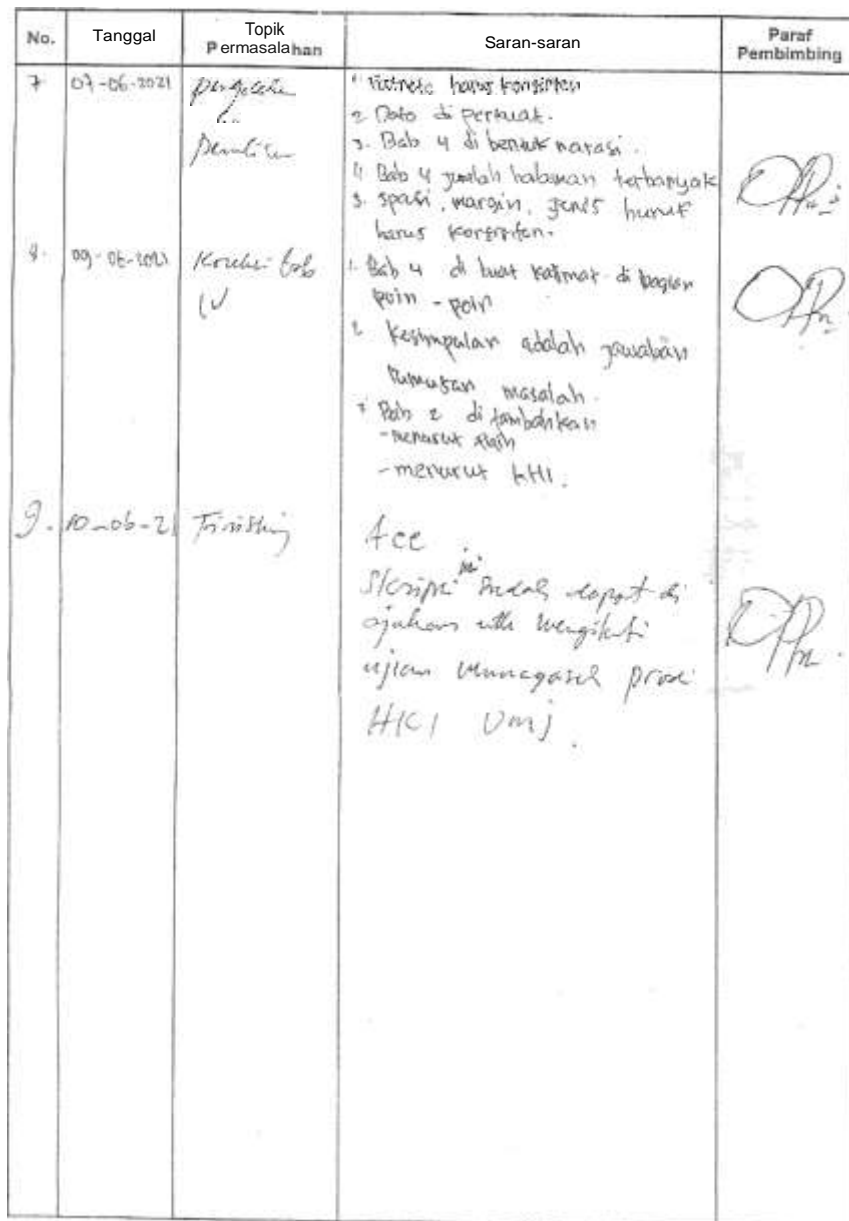 No. Tanggal Topik Permasalahan Saran-saran Paraf Pembimbing
7 07-06-2021
1. Footnote harus konsisten
2 Data di perkuat.
3. Bab 4 di bentuk narasi.
4 Bab 4 jumlah halaman terbanyak
5. spasi, margin, jenis huruf
harus konsisten.
8. 09-06-2021 Koreksi bab
IV
1. Bab 4 di buat kalimat di bagian
poin - poin
2 Kesimpulan adalah jawaban
Rumusan masalah.
3 Bab 2 di tambahkan
- menurut fiqih
- menurut KHI.
9. 10-06-21 Finishing
Acc
Skripsi ini sudah dapat di
ajukan utk mengikuti
ujian munaqasah prodi
HKI UMJ.